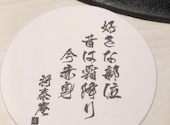 好きな部位
昔は霜降り
今赤身